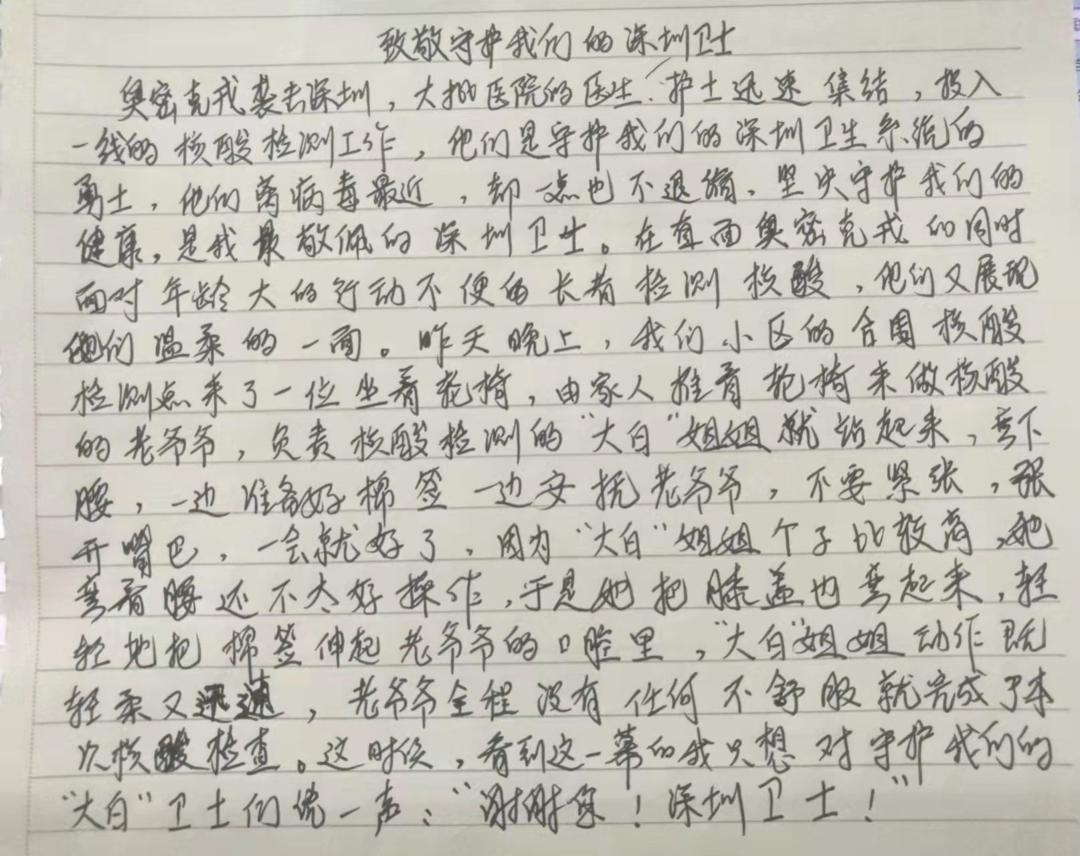 致敬守护我们的深圳卫士
奥密克戎袭击深圳，大批医院的医生、护士迅速集结，投入
一线的核酸检测工作，他们是守护我们的深圳卫生系统的
勇士，他们离病毒最近，却一点也不退缩、坚决守护我们的
健康，是我最敬佩的深圳卫士。在直面奥密克戎的同时
面对年龄大的行动不便的长者检测核酸，他们又展现
他们温柔的一面。昨天晚上，我们小区的合围核酸
检测点来了一位坐着轮椅，由家人推着轮椅来做核酸
的老爷爷，负责核酸检测的“大白”姐姐就站起来，弯下
腰，一边准备好棉签一边安抚老爷爷，不要紧张，张
开嘴巴，一会就好了，因为“大白”姐姐个子比较高，她
弯着腰还不太好操作，于是她把膝盖也弯起来，轻
轻地把棉签伸起老爷爷的口腔里，“大白”姐姐动作既
轻柔又迅速，老爷爷全程没有任何不舒服就完成了本
次核酸检查。这时候，看到这一幕的我只想对守护我们的
“大白”卫士们说一声：“谢谢您！深圳卫士！”